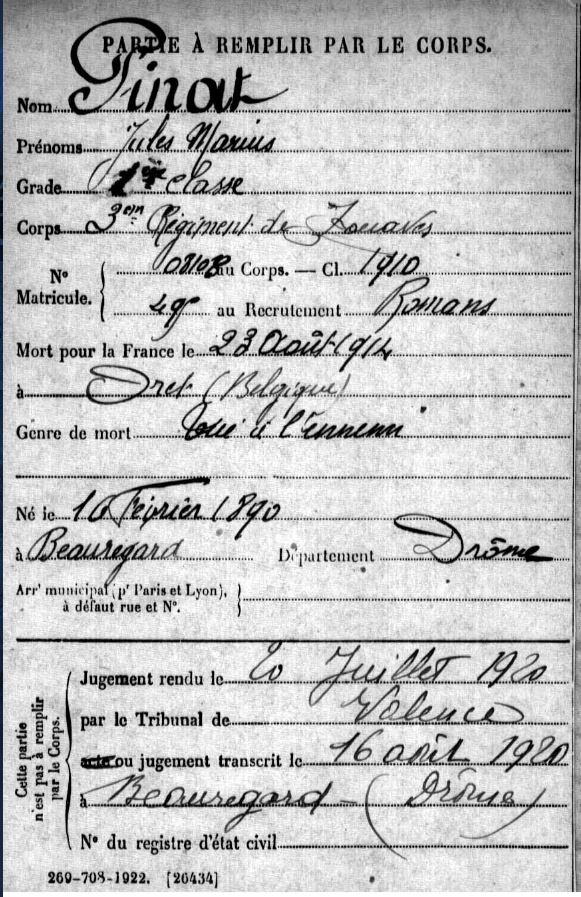 PARTIE À REMPLIR PAR LE CORPS.
Nom Pinat
Prénoms Jules Marius
Grade 1ère classe
Corps 3em Régiment de Zouaves
N° Matricule. au Corps. — Cl. 1910
49 au Recrutement Romans
Mort pour la France le 23 Août 1914
à Oret (Belgique)
Genre de mort tué à l'ennemi
Né le 16 Février 1890
à Beauregard Département Drôme
Arrt municipal (pr Paris et Lyon),
à défaut rue et N°.
Cette partie n'est pas à remplir par le Corps.
Jugement rendu le 20 Juillet 1920
par le Tribunal de Valence
acte ou jugement transcrit le 16 août 1920
à Beauregard - (Drôme)
N° du registre d'état civil
269-708-1922. [26434]